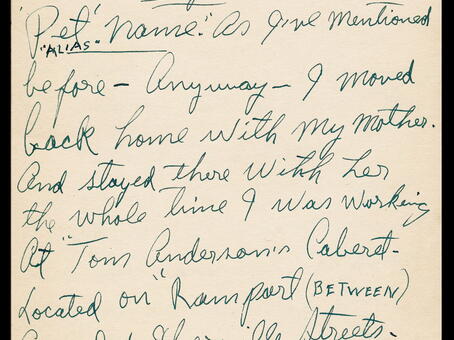 "Pet" name." As I've mentioned
"ALIAS"
before - Anyway - I moved
back home with my Mother.
And stayed there with her
the whole time I was working
At "Tom Anderson's Caberet-
Located on "Rampart (BETWEEN)
Streets-